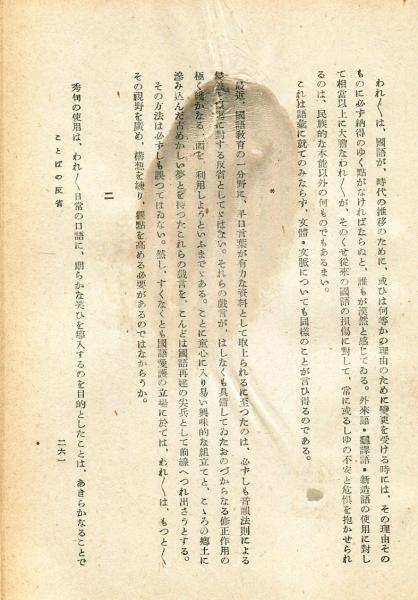 われ〳〵は、國語が、時代の推移のために、或ひは何等かの理由のために變更を受ける時には、その理由その
ものに必ず納得のゆく點がなければならぬと、誰もが漠然と感じてゐる。外來語・飜譯語・新造語の使用に對し
て相當以上に大膽なわれ〳〵が、そのくせ從來の國語の損傷に對して、常に或るしゆの不安と危惧を抱かせられ
るのは、民族的な本能以外の何ものでもあるまい。
これは語彙に就てのみならず、文體・文脈についても同樣のことが言ひ得るのである。
最近、國語教育の一分野に、早口言葉が有力な資料として取上られるに至つたのは、必ずしも音韻法則による
對する反省としてゞはない。それらの戲言が、はしなくも具備してゐたおのづからなる修正作用の
極く僅かなる一面を、利用しようといふまでゞある。ことに童心に入り易い興味的な組立てと、こゝろの鄕土に
滲み込んだ古めかしい夢とを持つたこれらの戲言を、こんどは國語再建の尖兵として前線へつれ出さうとする。
その方法は必ずしも誤つてはゐない。然し、すくなくとも國語愛護の立場に於ては、われ〳〵は、もつと〳〵
その視野を廣め、構想を練り、觀點を高める必要があるのではなからうか。
二
秀句の使用は、われ〳〵日常の口語に、朗らかな笑ひを導入するのを目的としたことは、あきらかなことで
ことばの反省
二六一